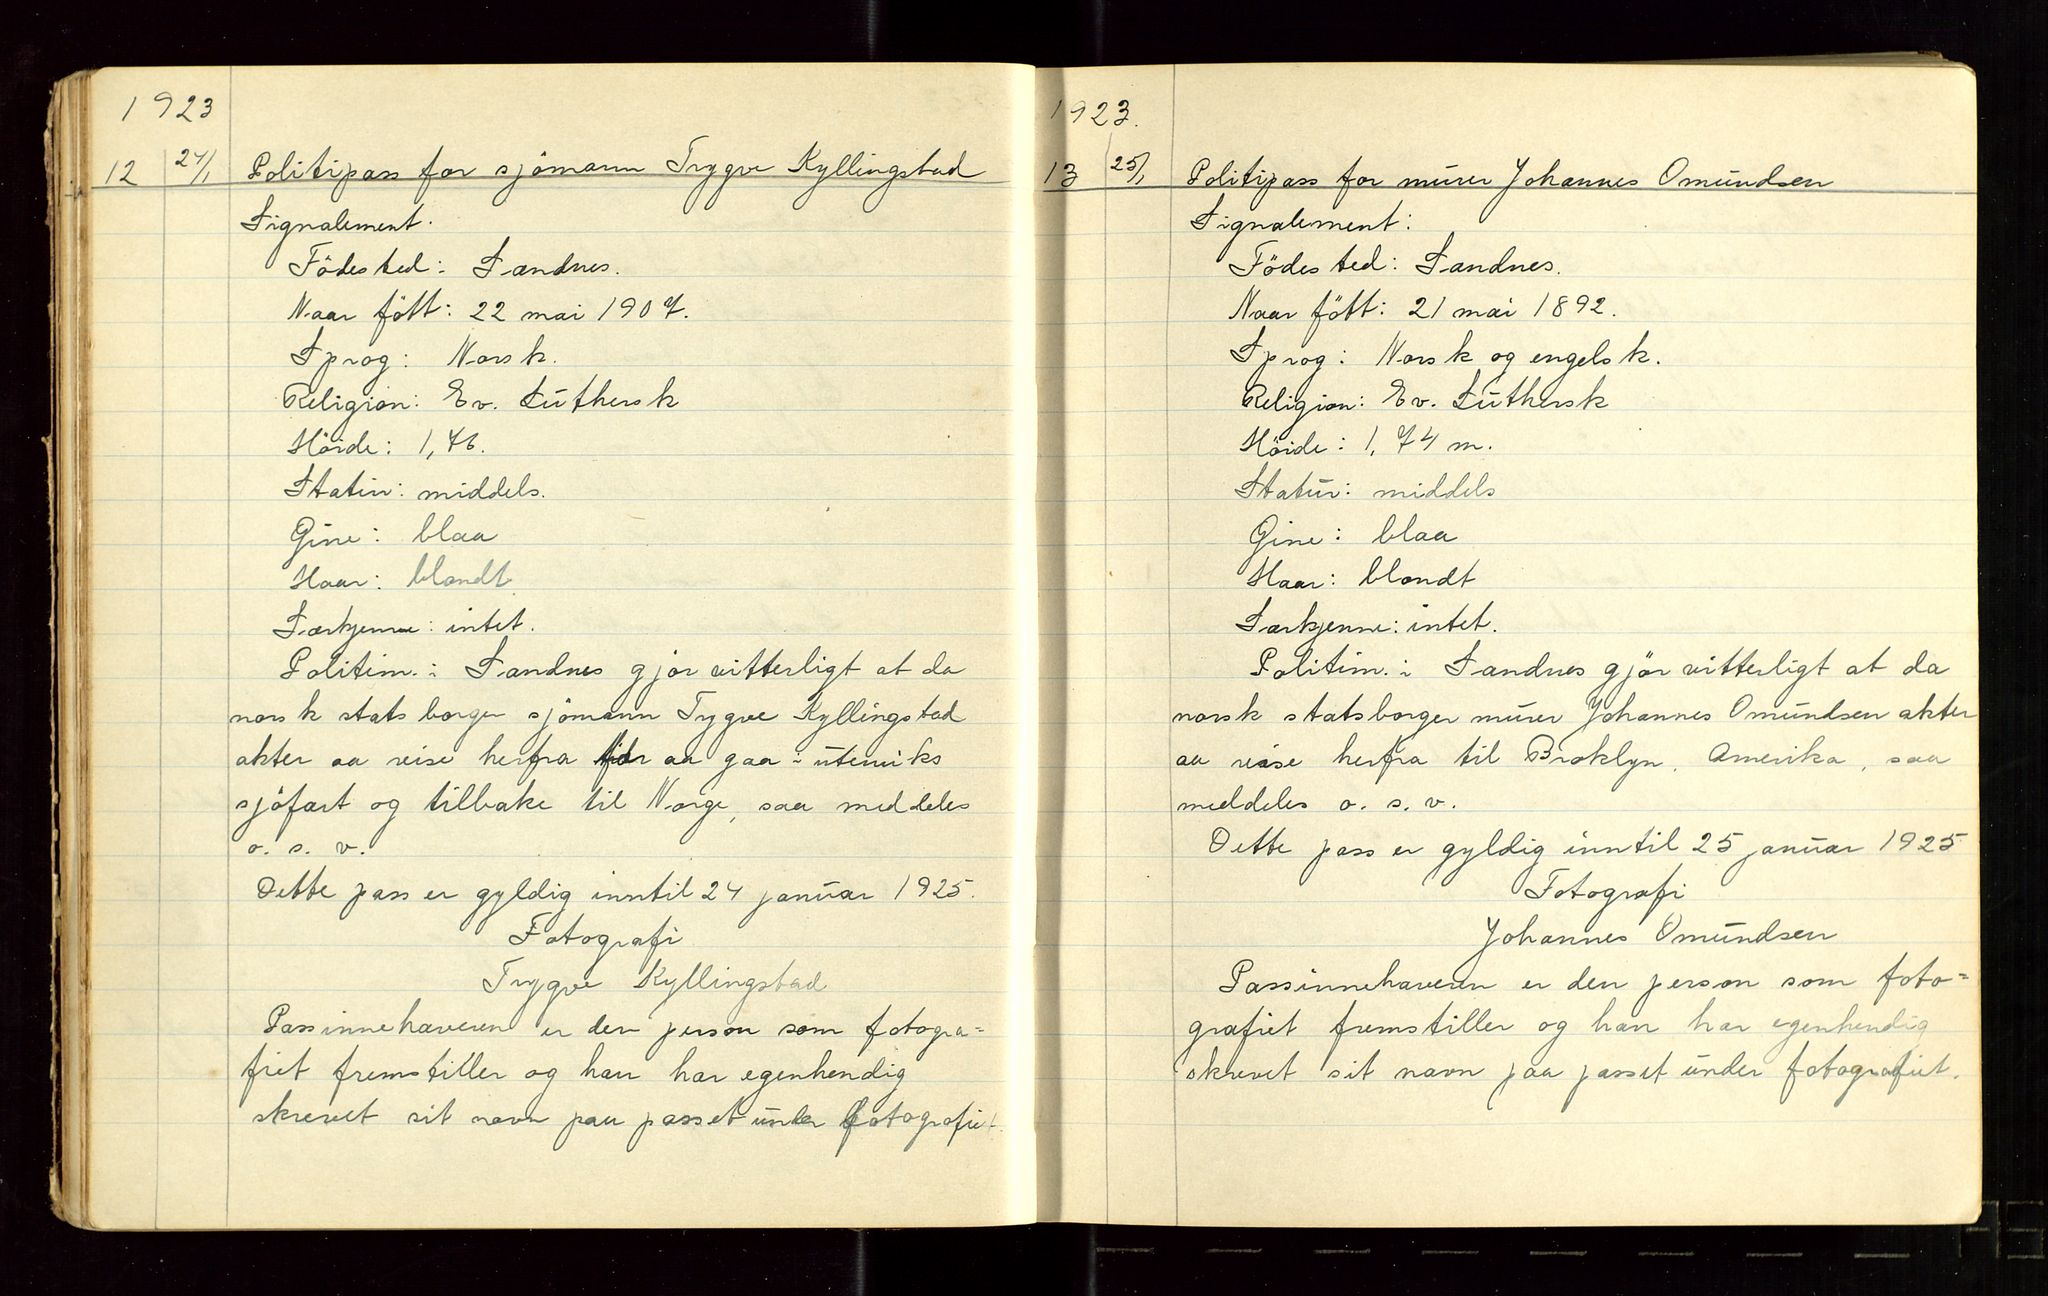 1923
12 24/1 Politipass for sjömann Trygve Kyllingstad
Signalement.
Födested: Sandnes.
Naar fött: 22 mai 1907.
Sprog: Norsk.
Religion: Ev. Luthersk
Höide: 1,76.
Statur: middels.
Öine: blaa
Haar: blondt
Særkjenne: intet.
Politim. i Sandnes gjör vitterligt at da
norsk statsborger sjömann Trygve Kyllingstad
akter aa reise herfra for aa gaa i utenriks
sjöfart og tilbake til Norge, saa meddeles
o. s. v.
Dette pass er gyldig inntil 24 januar 1925.
Fotografi
Trygve Kyllingstad
Passinnehaveren er den person som fotogra=
fiet fremstiller og han har egenhendig
skrevet sit navn paa passet under fotografiet.
1923.
13 25/1 Politipass for murer Johannes Omundsen
Signalement:
Födested: Sandnes.
Naar fött: 21 mai 1892.
Sprog: Norsk og engelsk.
Religion: Ev. Luthersk
Höide: 1,74 m.
Statur: middels
Öine: blaa
Haar: blondt
Særkjenne: intet.
Politim. i Sandnes gjör vitterligt at da
norsk statsborger murer Johannes Omundsen akter
aa reise herfra til Broklyn, Amerika, saa
meddeles o. s. v.
Dette pass er gyldig inntil 25 januar 1925
Fotografi
Johannes Omundsen
Passinnehaveren er den person som foto=
grafiet fremstiller og han har egenhendig
skrevet sit navn paa passet under fotografiet.